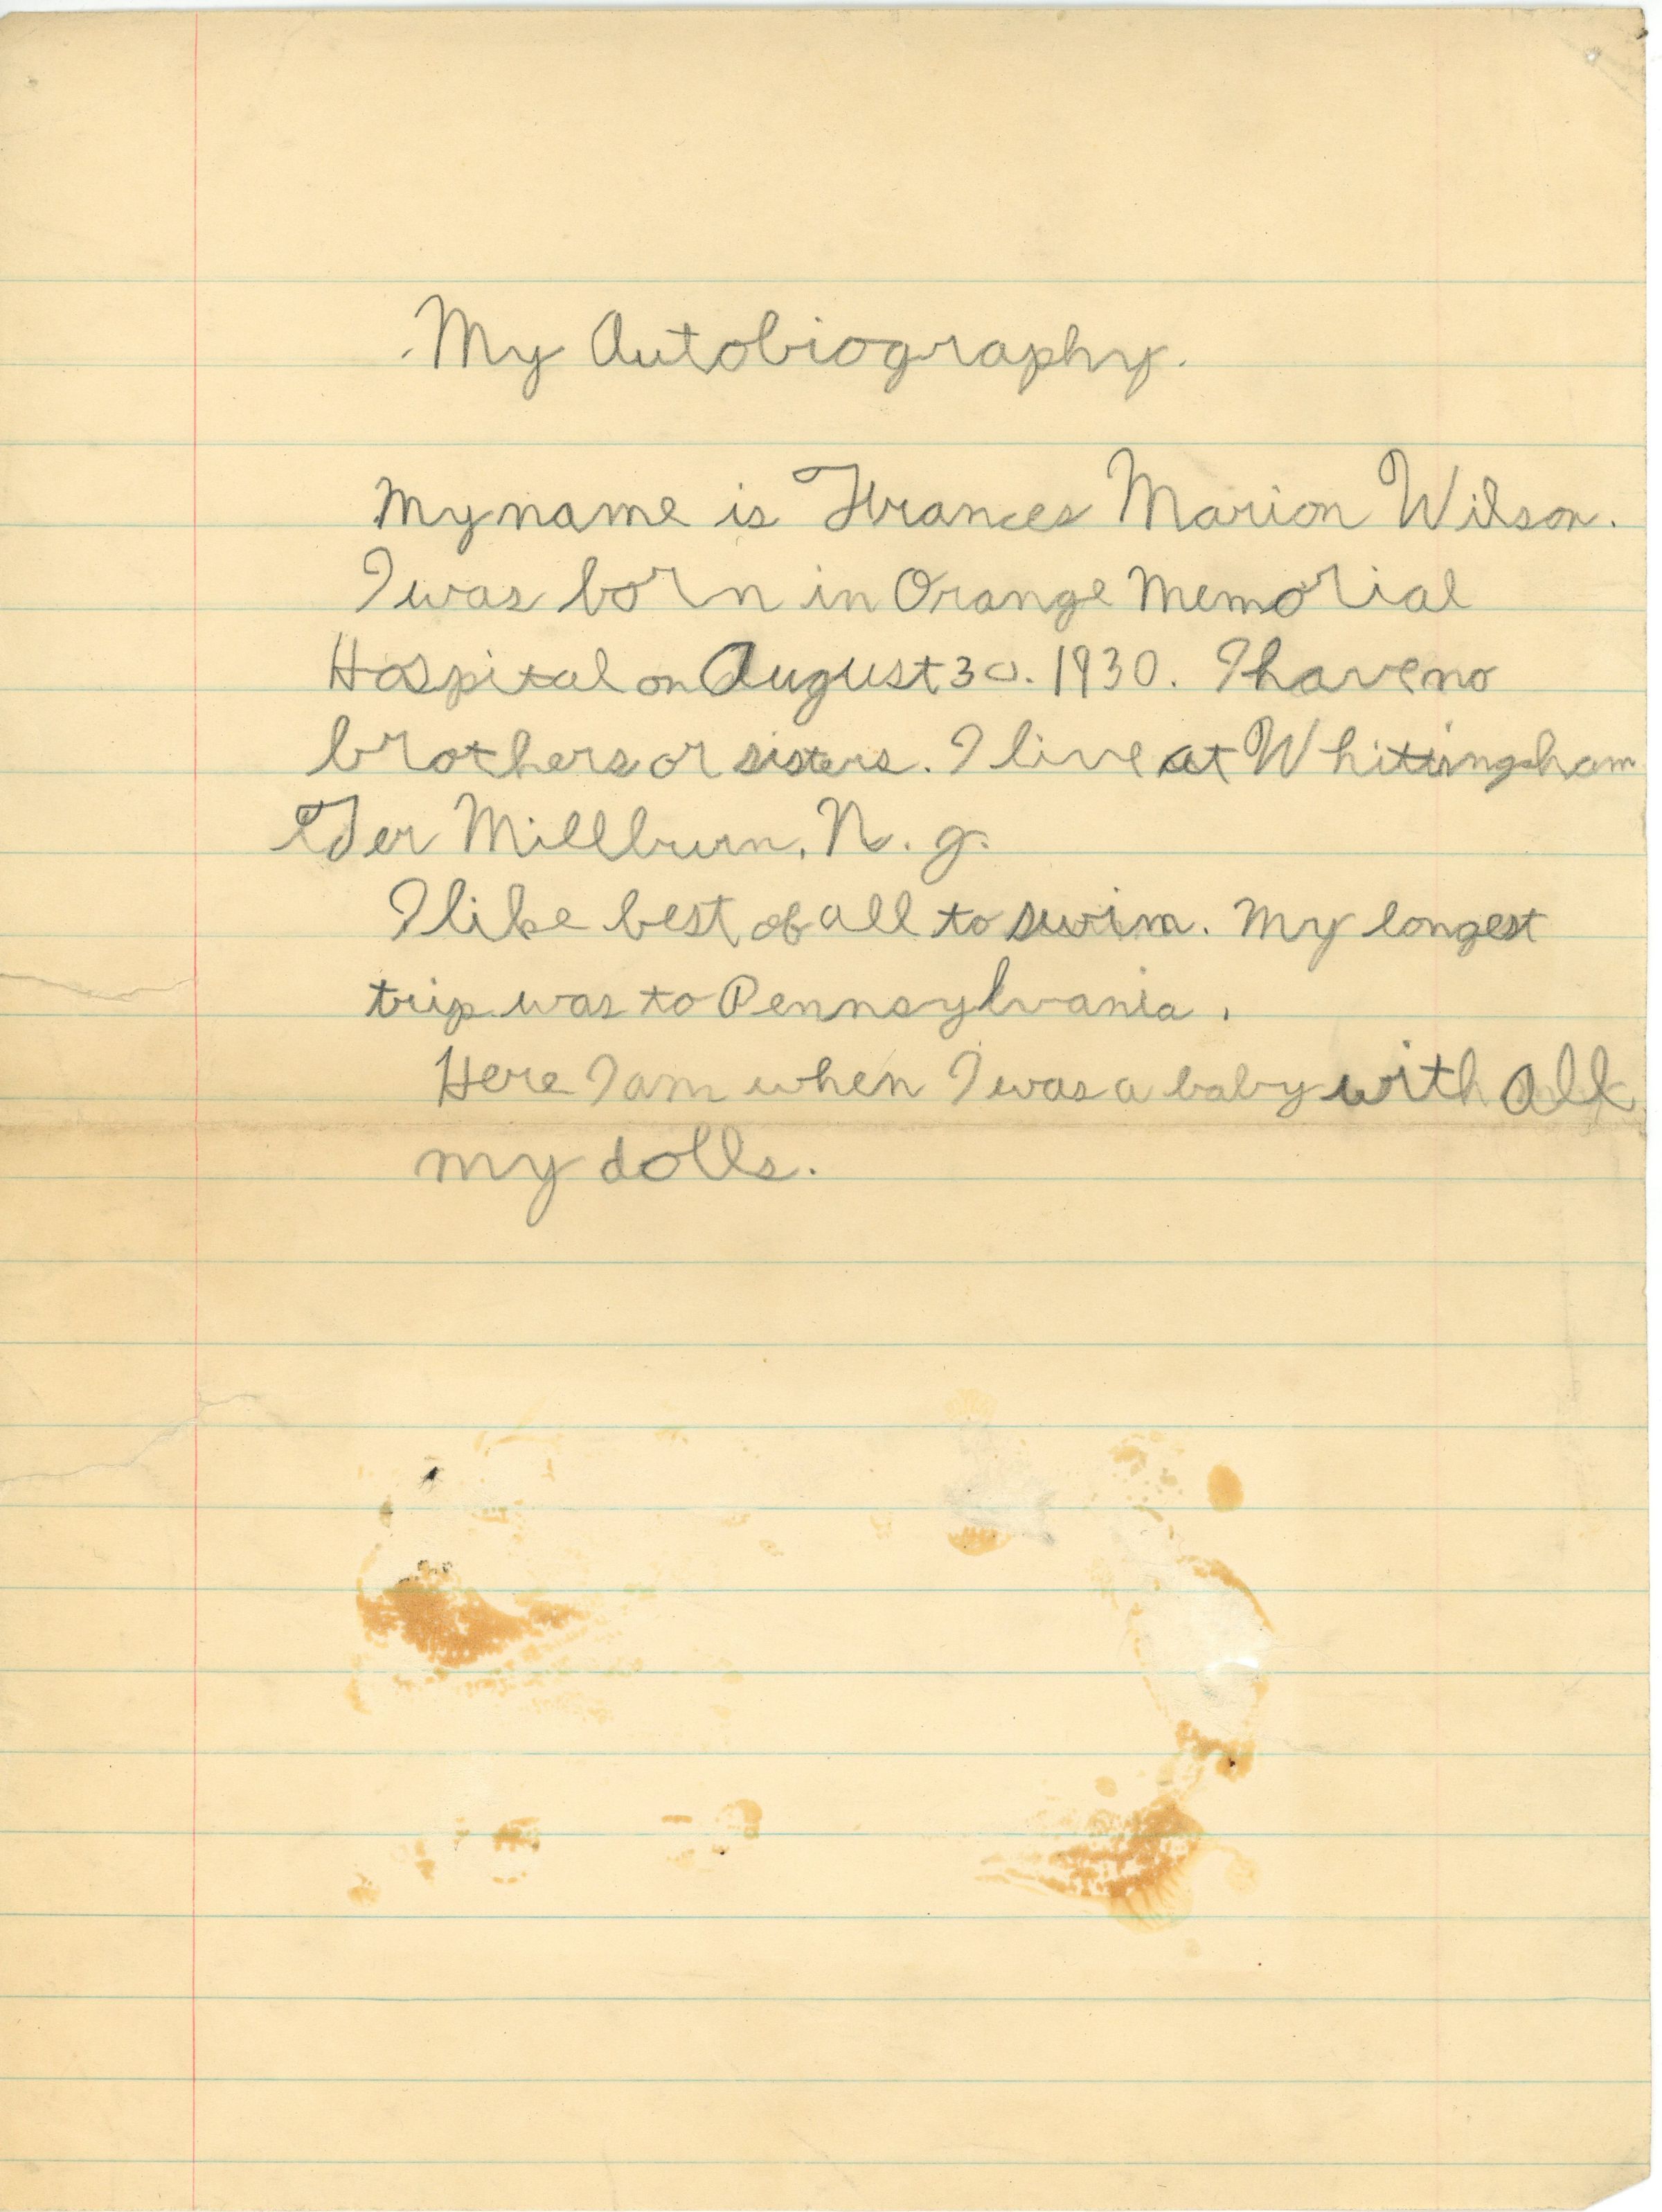 My Autobiography.
My name is Frances Marion Wilson.
I was born in Orange Memorial
Hospital on August 30. 1930. I have no
brothers or sisters. I live at Whittingham
Ter Millburn, N. J.
I like best of all to swim. My longest
trip was to Pennsylvania.
Here I am when I was a baby with all
my dolls.